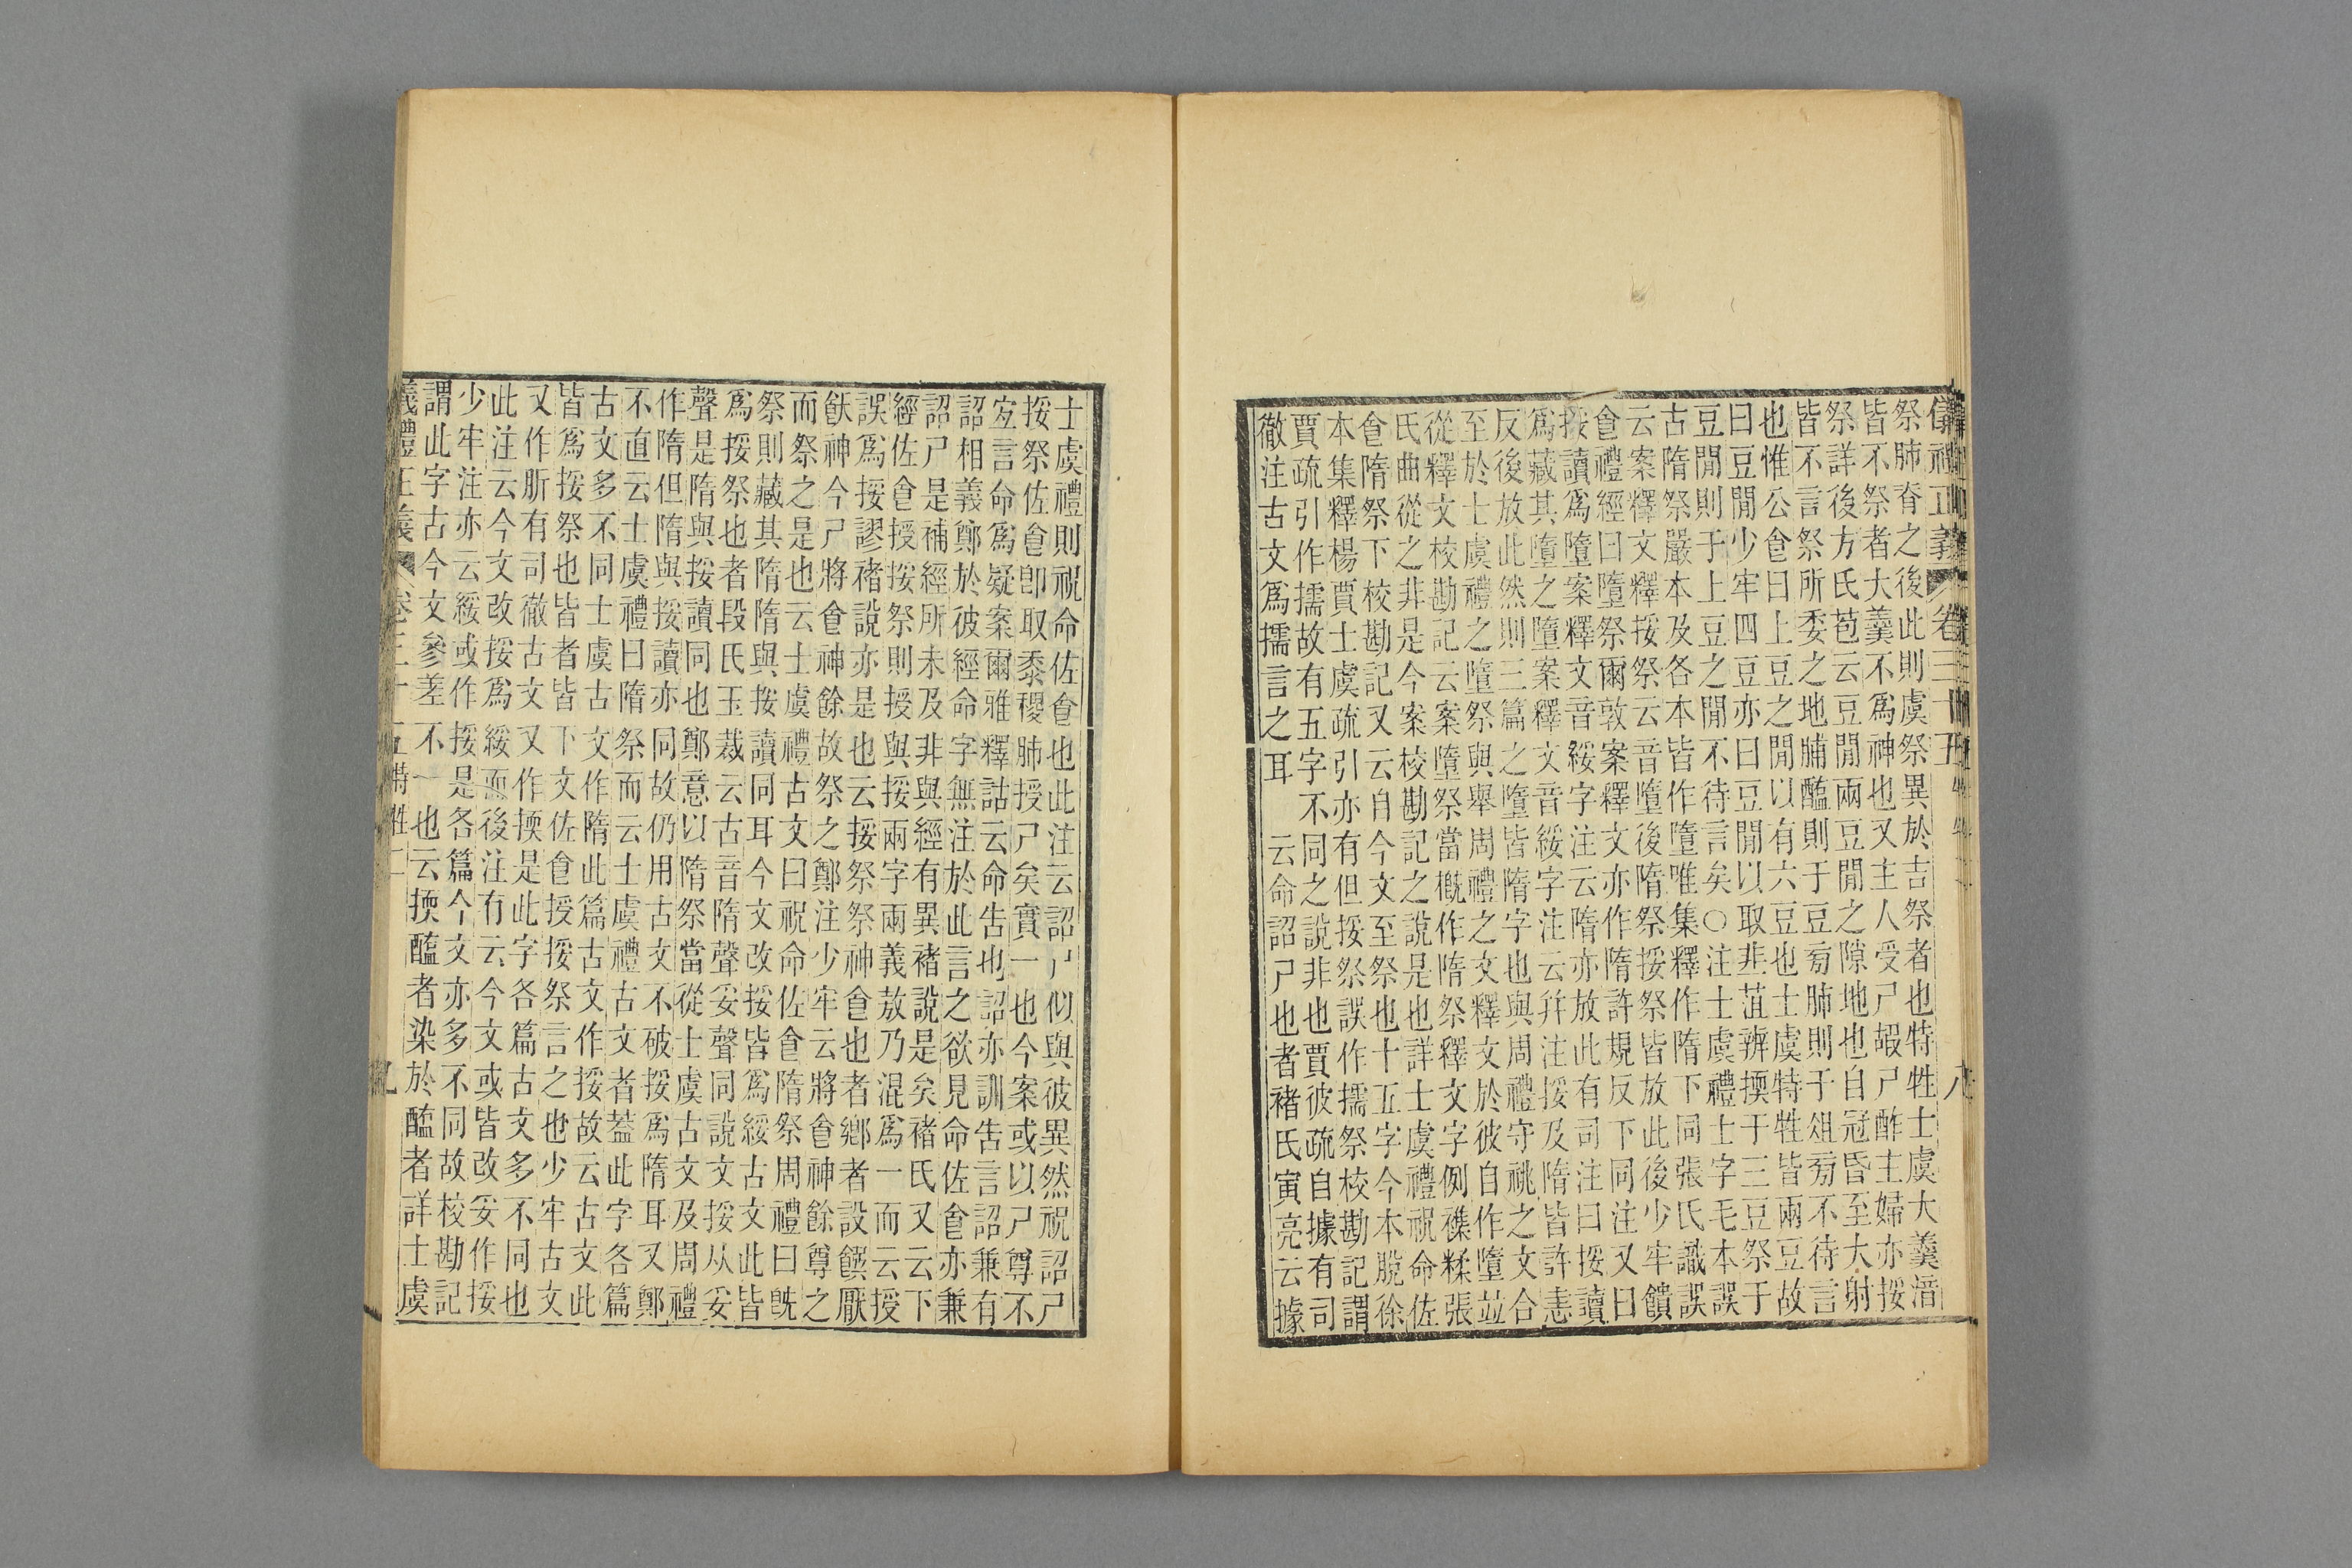 祭肺脊之後此則虞祭異於吉祭者也特牲士虞大羹湇
皆不祭者大羹不爲神也又主人受尸嘏尸酢主婦亦挼
祭詳後方氏苞云豆閒兩豆閒之隙地也自冠昏至大射
皆不言祭所委之地脯醢則于豆㫄肺則于俎㫄不待言
也惟公食曰上豆之閒以有六豆也士虞特牲皆兩豆故
曰豆閒少牢四豆亦曰豆閒以取韭菹辨擩于三豆祭于
豆閒則于上豆之閒不待言矣○注士虞禮士字毛本誤
古隋祭嚴本及各本皆作墮唯集釋作隋下同張氏識誤
云案釋文釋挼祭云音墮後隋祭挼祭皆放此後少牢饋
食禮經曰墮祭爾敦案釋文亦作隋許規反下同注又曰
挼讀爲墮案釋文音綏字注云隋亦放此有司注曰挼讀
爲藏其墮之墮案釋文音綏字注云幷注挼及隋皆許恚
反後放此然則三篇之墮皆隋字也與周禮守祧之文合
至於士虞禮之墮祭與舉周禮之文釋文於彼自作墮並
從釋文校勘記云案墮祭當槪作隋祭釋文字例襍糅張
氏曲從之非是今案校勘記之說是也詳士虞禮祝命佐
食隋祭下校勘記又云自今文至祭也十五字今本脫徐
本集釋楊賈士虞疏引亦有但挼祭誤作擩祭校勘記謂
賈疏引作擩故有五字不同之說非也賈彼疏自據有司
徹注古文爲擩言之耳　云命詔尸也者褚氏寅亮云據
士虞禮則祝命佐食也此注云詔尸似與彼異然祝詔尸
挼祭佐食卽取黍稷肺授尸矣實一也今案或以尸尊不
宐言命爲疑案爾雅釋詁云命告也詔亦訓告言詔兼有
詔相義鄭於彼經命字無注於此言之欲見命佐食亦兼
詔尸是補經所未及非與經有異褚說是矣褚氏又云下
經佐食授挼祭則授與挼兩字兩義敖乃混爲一而云授
誤爲挼謬褚說亦是也云挼祭祭神食也者鄉者設饌厭
飫神今尸將食神餘故祭之鄭注少牢云將食神餘尊之
而祭之是也云士虞禮古文曰祝命佐食隋祭周禮曰旣
祭則藏其隋隋與挼讀同耳今文改挼皆爲綏古文此皆
爲挼祭也者段氏玉裁云古音隋聲妥聲同說文挼从妥
聲是隋與挼讀同也鄭意以隋祭當從士虞古文及周禮
作隋但隋與挼讀亦同故仍用古文不破挼爲隋耳又鄭
不直云士虞禮曰隋祭而云士虞禮古文者蓋此字各篇
古文多不同士虞古文作隋此篇古文作挼故云古文此
皆爲挼祭也皆者皆下文佐食授挼祭言之也少牢古文
又作肵有司徹古文又作擩是此字各篇古文多不同也
此注云今文改挼爲綏而後注有云今文或皆改妥作挼
少牢注亦云綏或作挼是各篇今文亦多不同故校勘記
謂此字古今文參差不一也云擩醢者染於醢者詳士虞